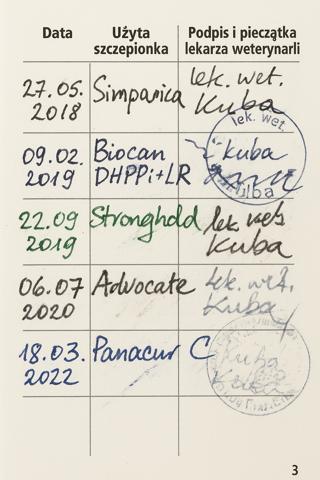 Data
Użyta szczepionka
Podpis i pieczątka lekarza weterynarii
27.05. 2018
Simpanica
lek. wet. Kuba
09.02. 2019
Biocan DHPPi+LR
lek. wet. Kuba
22.09 2019
Stronghold
lek. wet. Kuba
06.07 2020
Advocate
lek. wet. Kuba
18.03. 2022
Panacur C
Kuba
3